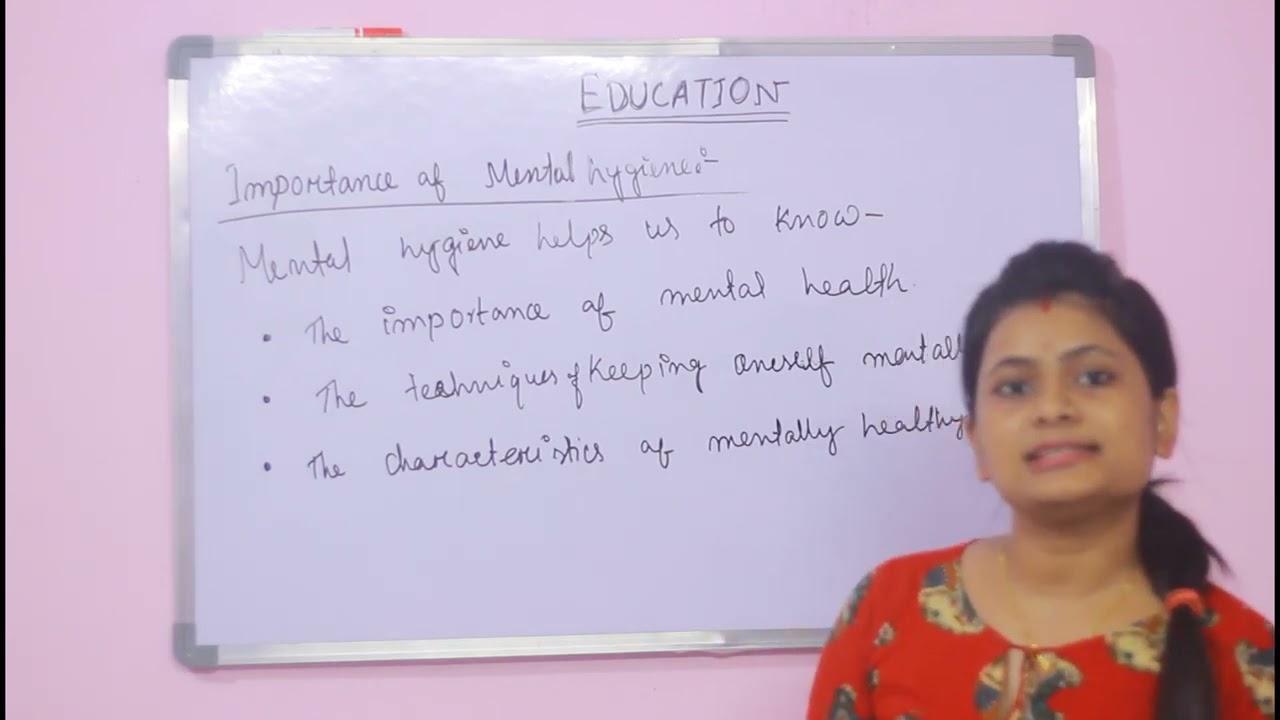 EDUCATION
Importance of Mental hygiene:-
Mental hygiene helps us to know-
• The importance of mental health.
• The techniques of keeping oneself mentall
• The characteristics of mentally healthy